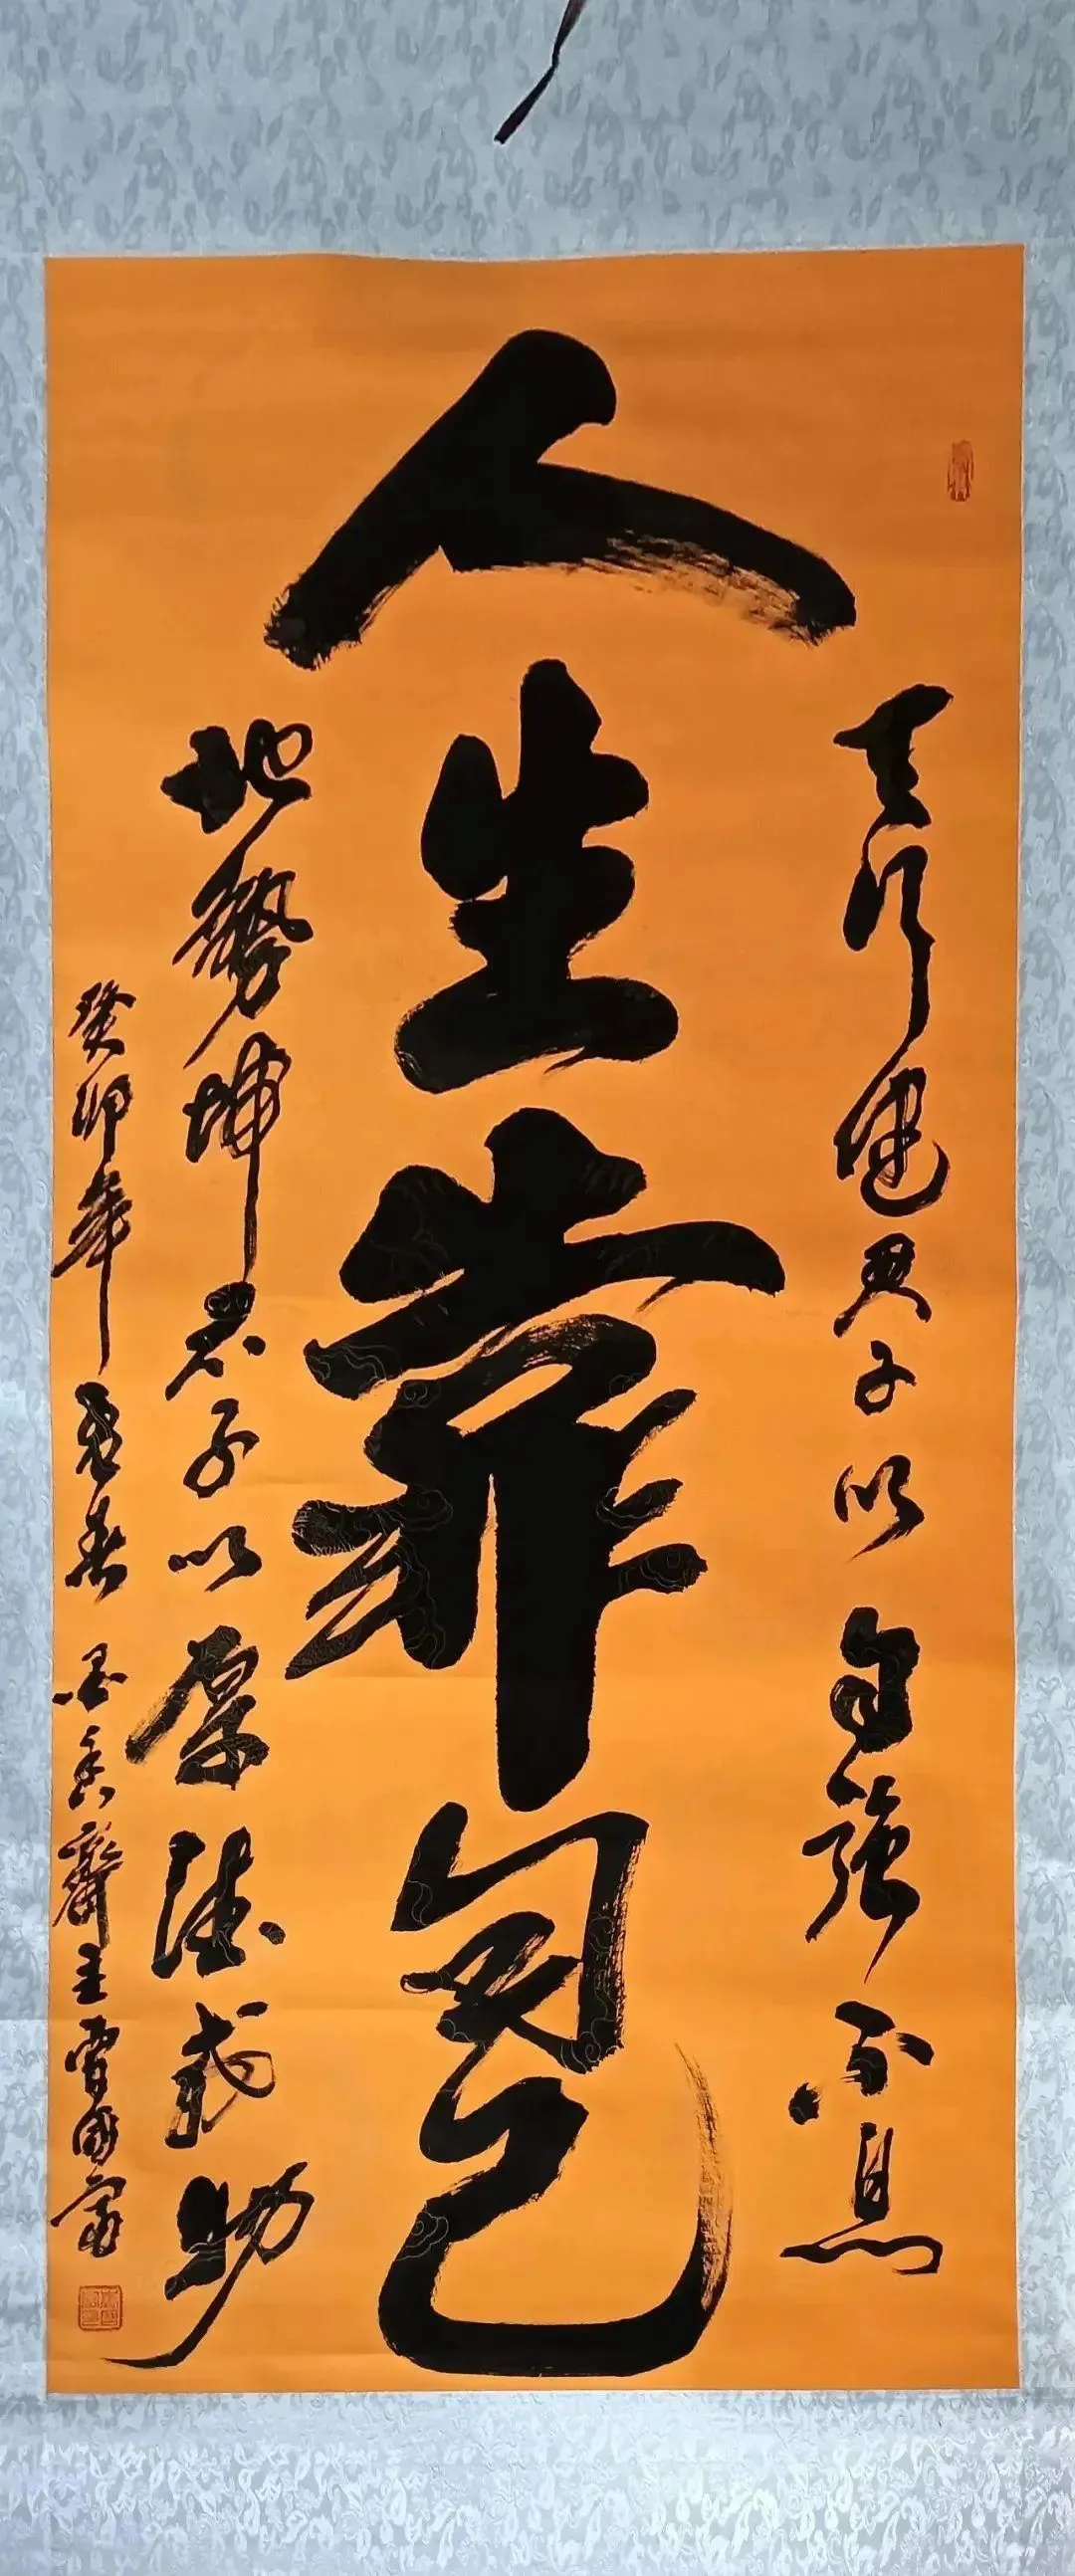 天行健君子以自强不息
人生靠自己
地勢坤君子以厚德载物
癸卯年春 墨香齋主